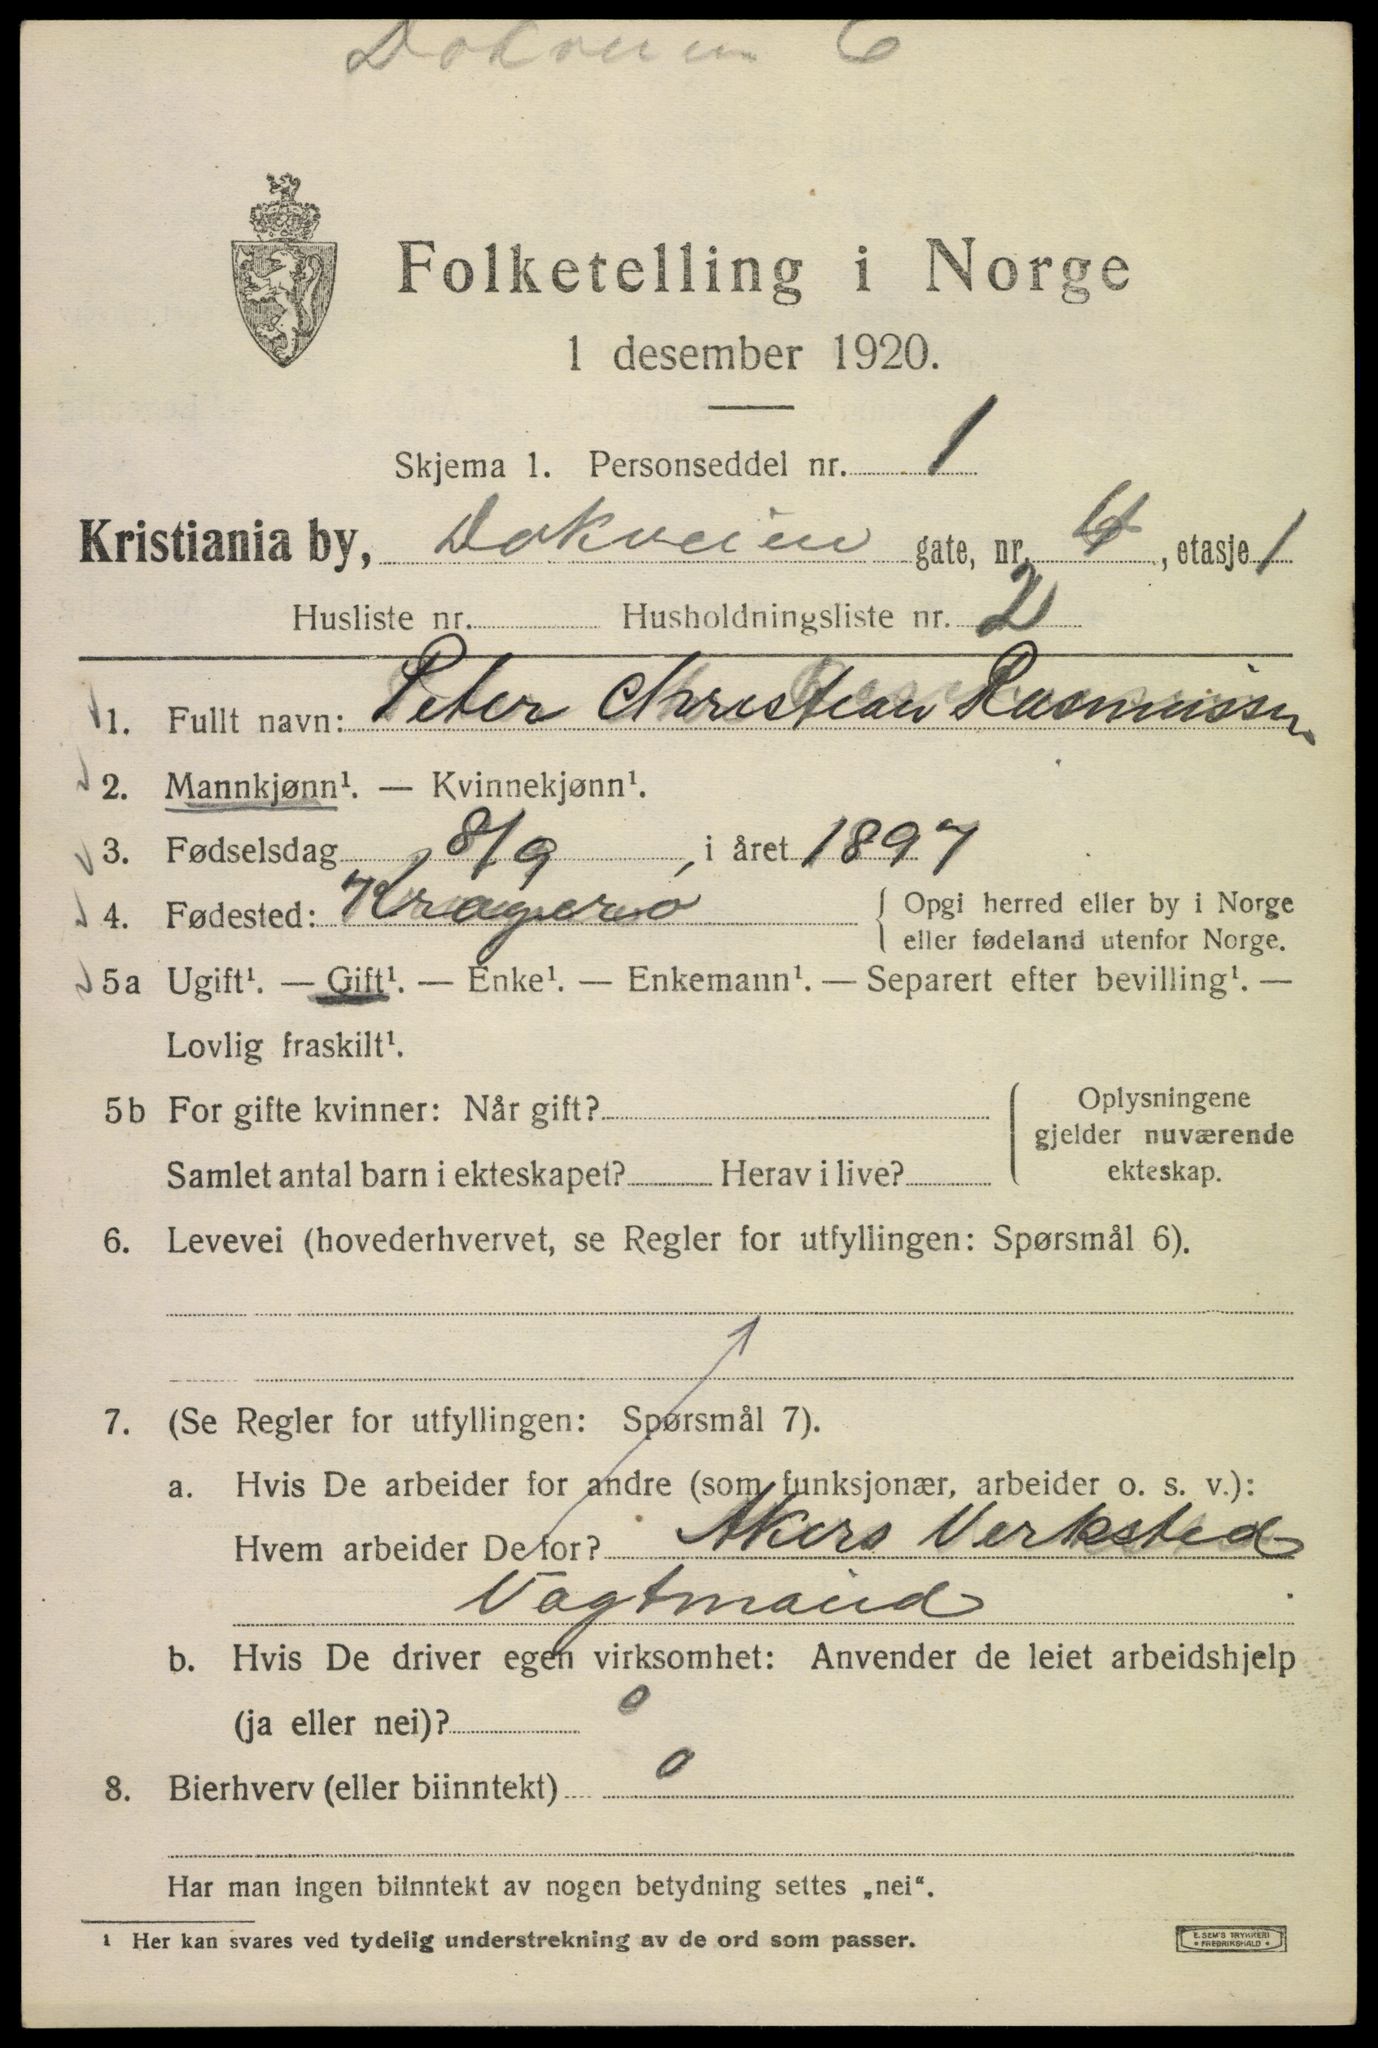 Dokveien 6
Folketelling i Norge
1 desember 1920.
Skjema 1. Personseddel nr. 1
Kristiania by, Dokveien gate, nr. , etasje 1
Husliste nr. Husholdningsliste nr. 2
1. Fullt navn: Peter Christian Rasmussen
2. Mannkjønn¹. — Kvinnekjønn¹.
3. Fødselsdag 8/9, i året 1897
4. Fødested: Kragerø { Opgi herred eller by i Norge
eller fødeland utenfor Norge.
5a Ugift¹. — Gift¹. — Enke¹. — Enkemann¹. — Separert efter bevilling¹. —
Lovlig fraskilt¹.
5b For gifte kvinner: Når gift?
Samlet antal barn i ekteskapet? Herav i live?
Oplysningene
gjelder nuværende
ekteskap.
6. Levevei (hovederhvervet, se Regler for utfyllingen: Spørsmål 6).
7. (Se Regler for utfyllingen: Spørsmål 7).
a. Hvis De arbeider for andre (som funksjonær, arbeider o. s. v.):
Hvem arbeider De for? Akers Verksted
Vagtmand
b. Hvis De driver egen virksomhet: Anvender de leiet arbeidshjelp
(ja eller nei)? 0
8. Bierhverv (eller biinntekt) 0
Har man ingen biinntekt av nogen betydning settes „nei“.
¹ Her kan svares ved tydelig understrekning av de ord som passer.
E. SEM'S TRYKKERI
• FREDRIKSHALD •